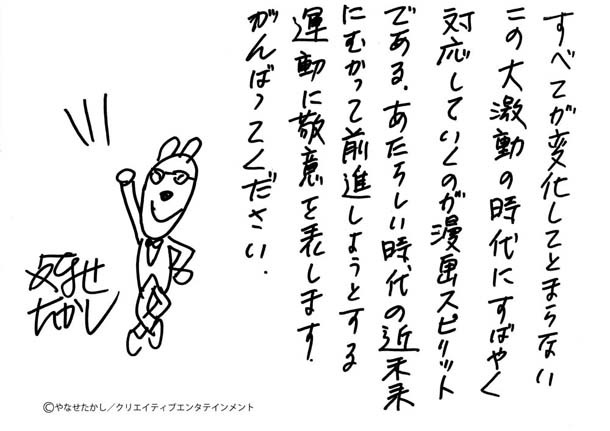 すべてが変化してとまらない
この大激動の時代にすばやく
対応していくのが漫画スピリット
である。あたらしい時代の近未来
にむかって前進しようとする
運動に敬意を表します。
がんばってください。
やなせ
たかし
©やなせたかし／クリエイティブエンタテインメント